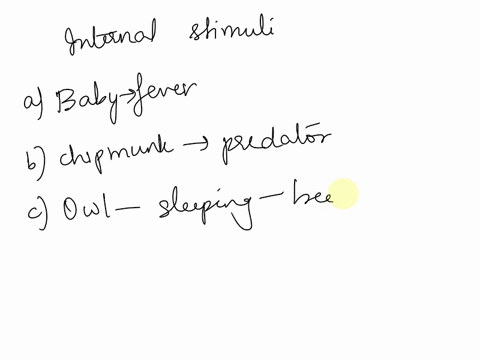 Internal stimuli
a) Baby→fever
b) chipmunk → predator
c) Owl – sleeping – bee